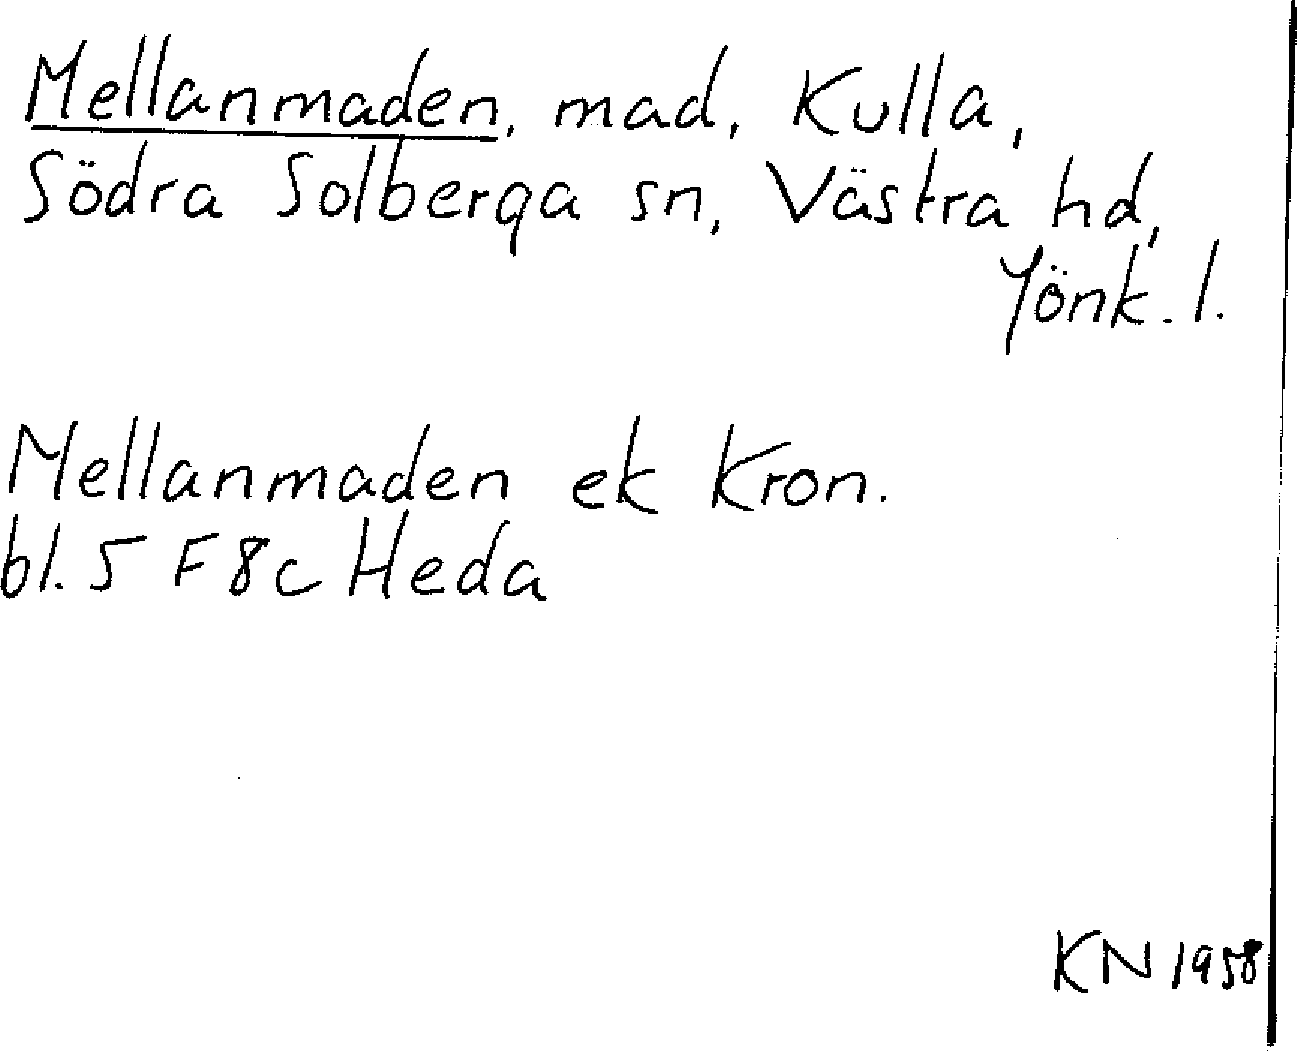 Mellanmaden, mad, Kulla,
Södra Solberga sn, Västra hd,
Jönk. l.
Mellanmaden ek Kron.
bl. 5 F 8c Heda
KN 1958